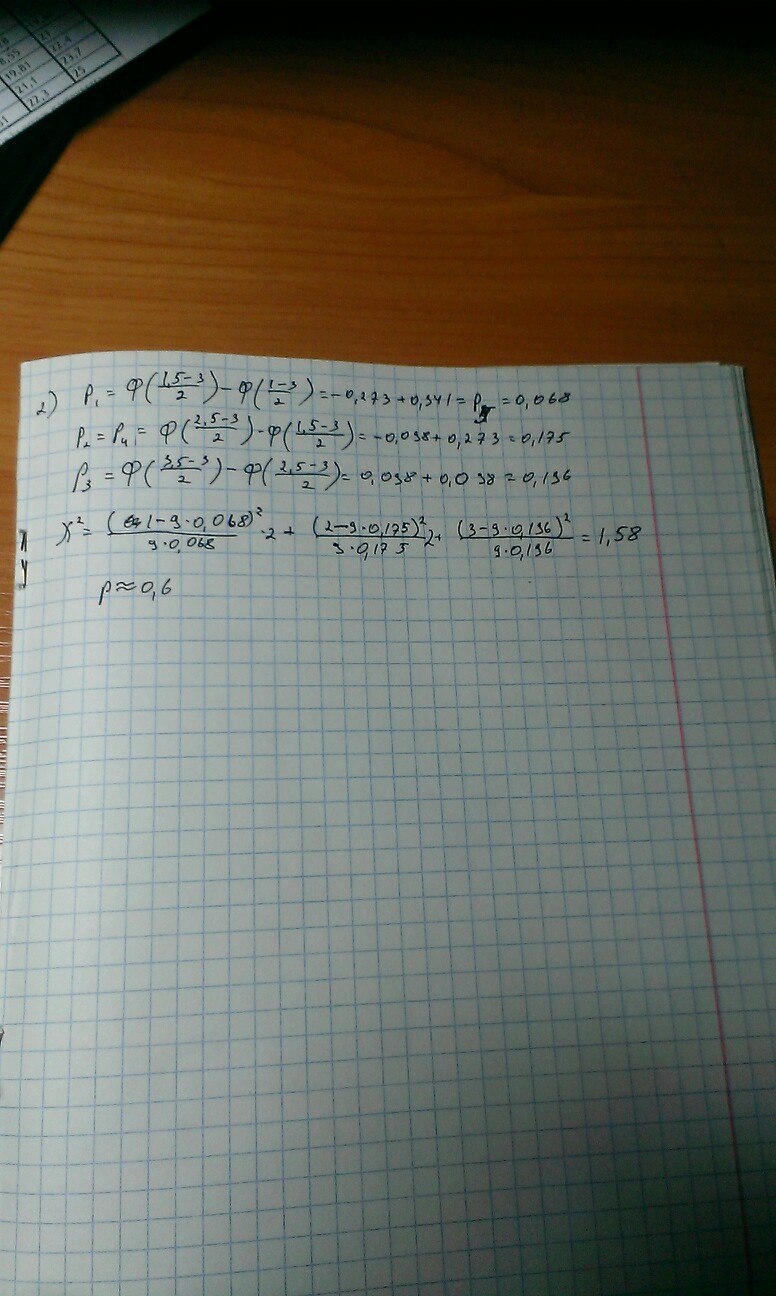 8,55 21
19,81 22,4
21,1 23,7
22,3 25
2) P₁ = Ф((1,5−3)/2) − Ф((1−3)/2) = −0,273+0,341 = P₅ = 0,068
P₂ = P₄ = Ф((2,5−3)/2) − Ф((1,5−3)/2) = −0,098+0,273 = 0,175
P₃ = Ф((3,5−3)/2) − Ф((2,5−3)/2) = 0,098+0,098 = 0,196
χ² = (1−9·0,068)²/(9·0,068) ·2 + (2−9·0,175)²/(9·0,175) 2 + (3−9·0,196)²/(9·0,196) = 1,58
p ≈ 0,6